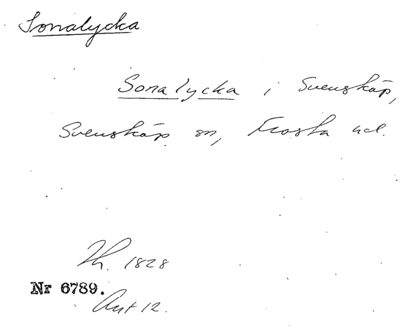 Sonalycka
Sonalycka i Svensköp,
Svensköp sn, Frosta hd.
Th. 1828
Nr 6789.
Ant 12.